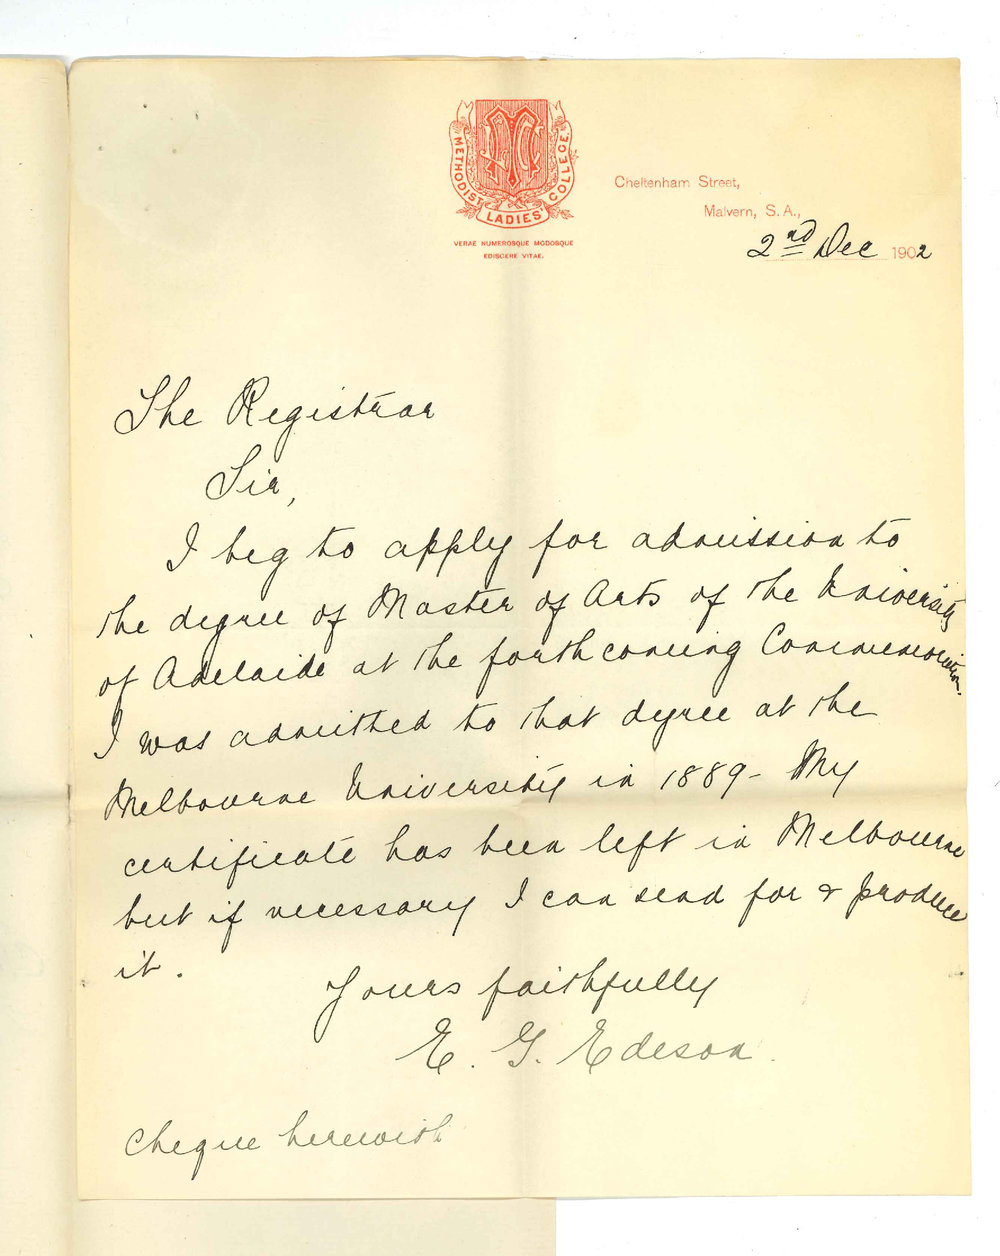 METHODIST LADIES' COLLEGE.
VERAE NUMEROSQUE MODOSQUE
EDISCERE VITAE.
Cheltenham Street,
Malvern, S. A.,
2nd Dec 1902
The Registrar
Sir,
I beg to apply for admission to
the degree of Master of Arts of the University
of Adelaide at the forthcoming Commemoration.
I was admitted to that degree at the
Melbourne University in 1889 - My
certificate has been left in Melbourne
but if necessary I can send for & produce
it.
Yours faithfully
E. G. Edeson.
Cheque herewith